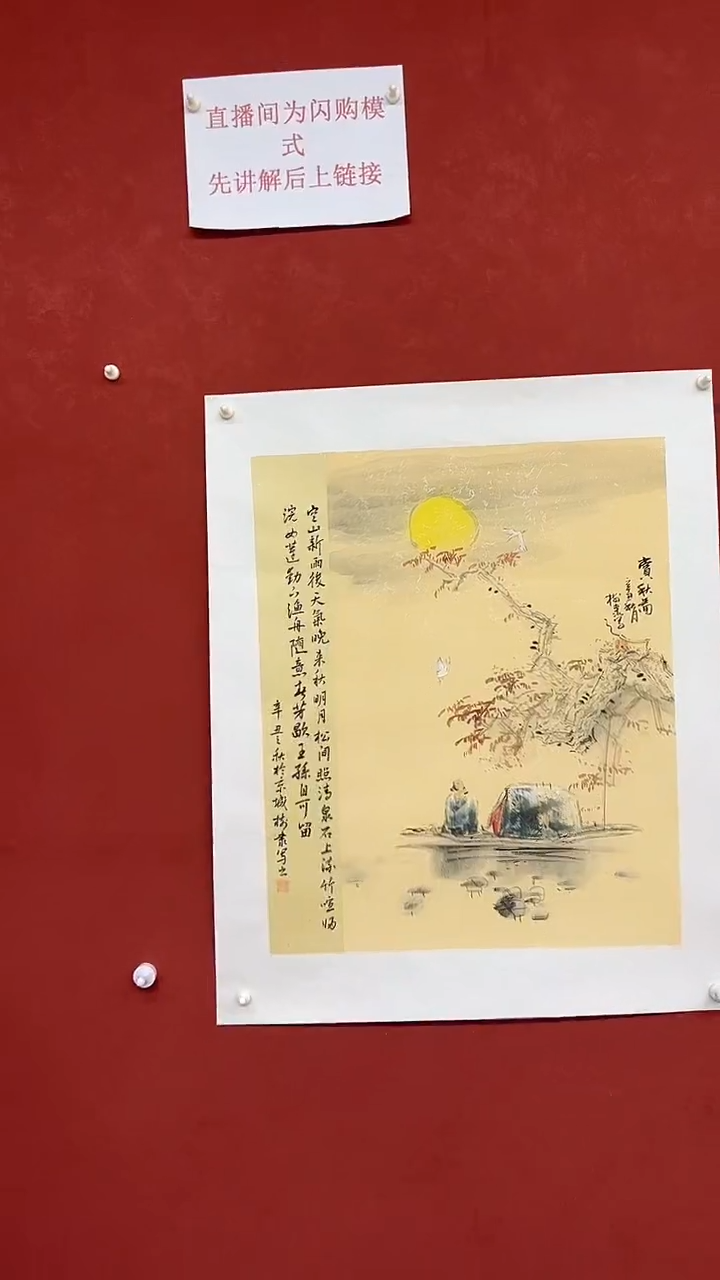 直播间为闪购模
式
先讲解后上链接
空山新雨後天氣晚来秋明月松间照清泉石上流竹喧归
浣女莲动下渔舟随意春芳歇王孫自可留
辛丑之秋於京城树棠写之
賞秋圖